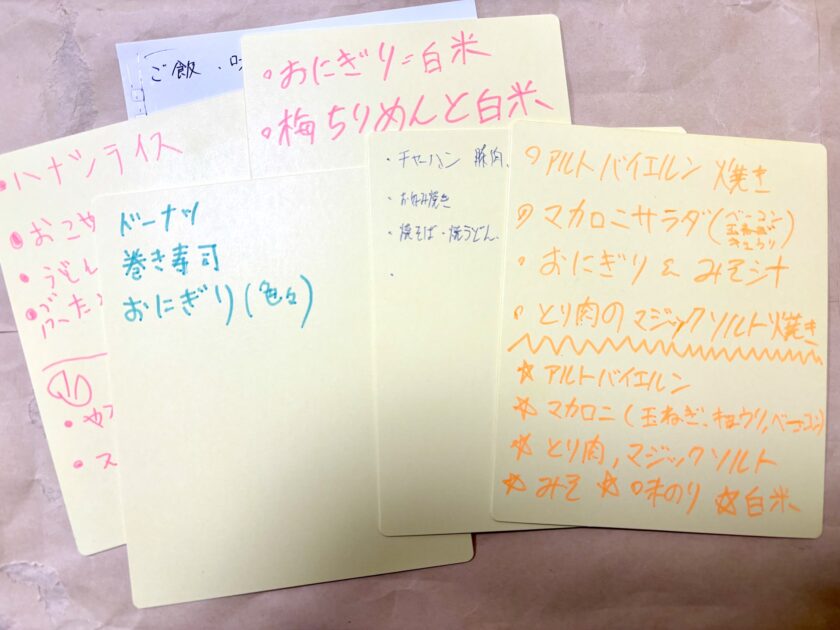 ご飯
・おにぎり=白米
・梅ちりめんと白米、
・ハヤシライス
・うどん
①
ドーナツ
巻き寿司
おにぎり(色々)
・チャーハン 豚肉、
・お好み焼き
・焼そば・焼うどん、
・
○アルトバイエルン 焼き
○マカロニサラダ(ベーコン 玉ねぎ きゅうり)
○おにぎり & みそ汁
○とり肉のマジックソルト焼き
☆アルトバイエルン
☆マカロニ(玉ねぎ、キュウリ,ベーコン)
☆とり肉,マジックソルト
☆みそ ☆味のり ☆白米、